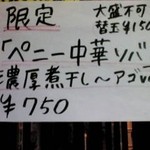 限定
大盛不可
替玉¥150
「ペニー中華ソバ」
濃厚煮干し〜アゴ
¥750